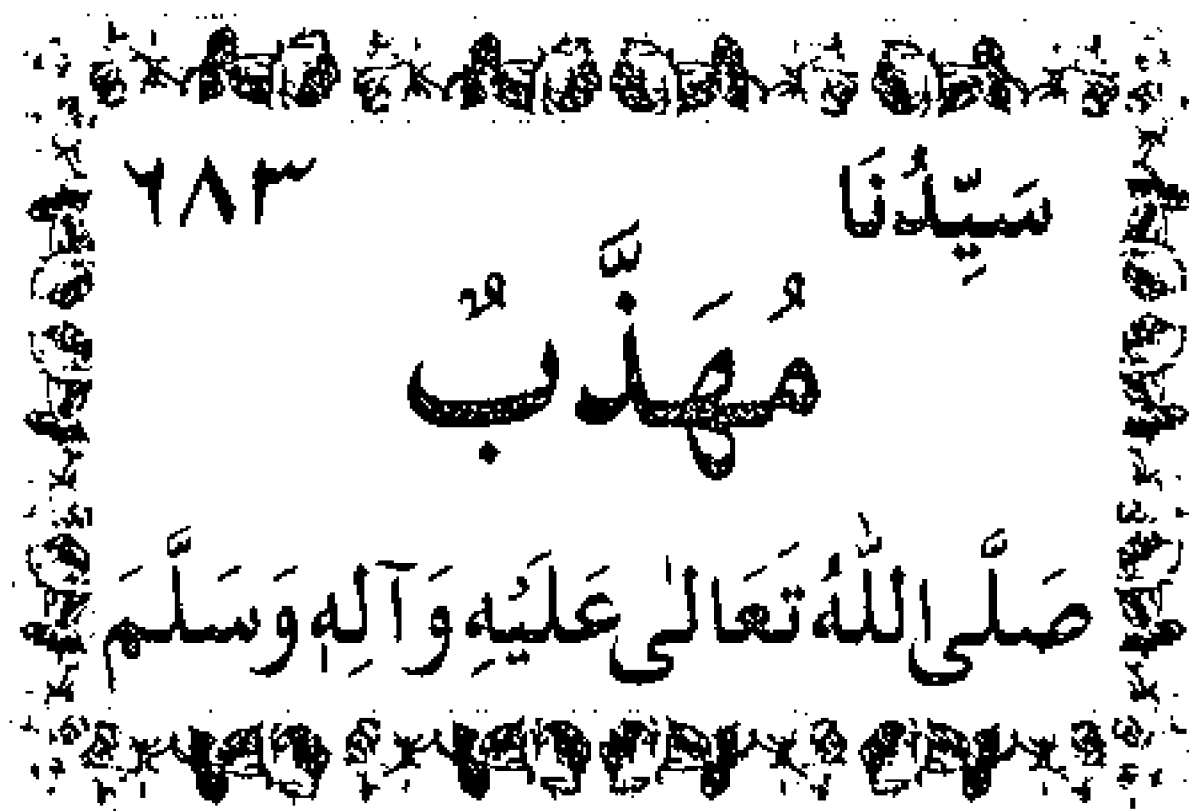 سَيِّدُنَا ٦٨٣
مُهَذَّبٌ
صَلَّی اللّٰهُ تَعَالٰی عَلَيْهِ وَآلِهٖ وَسَلَّمَ